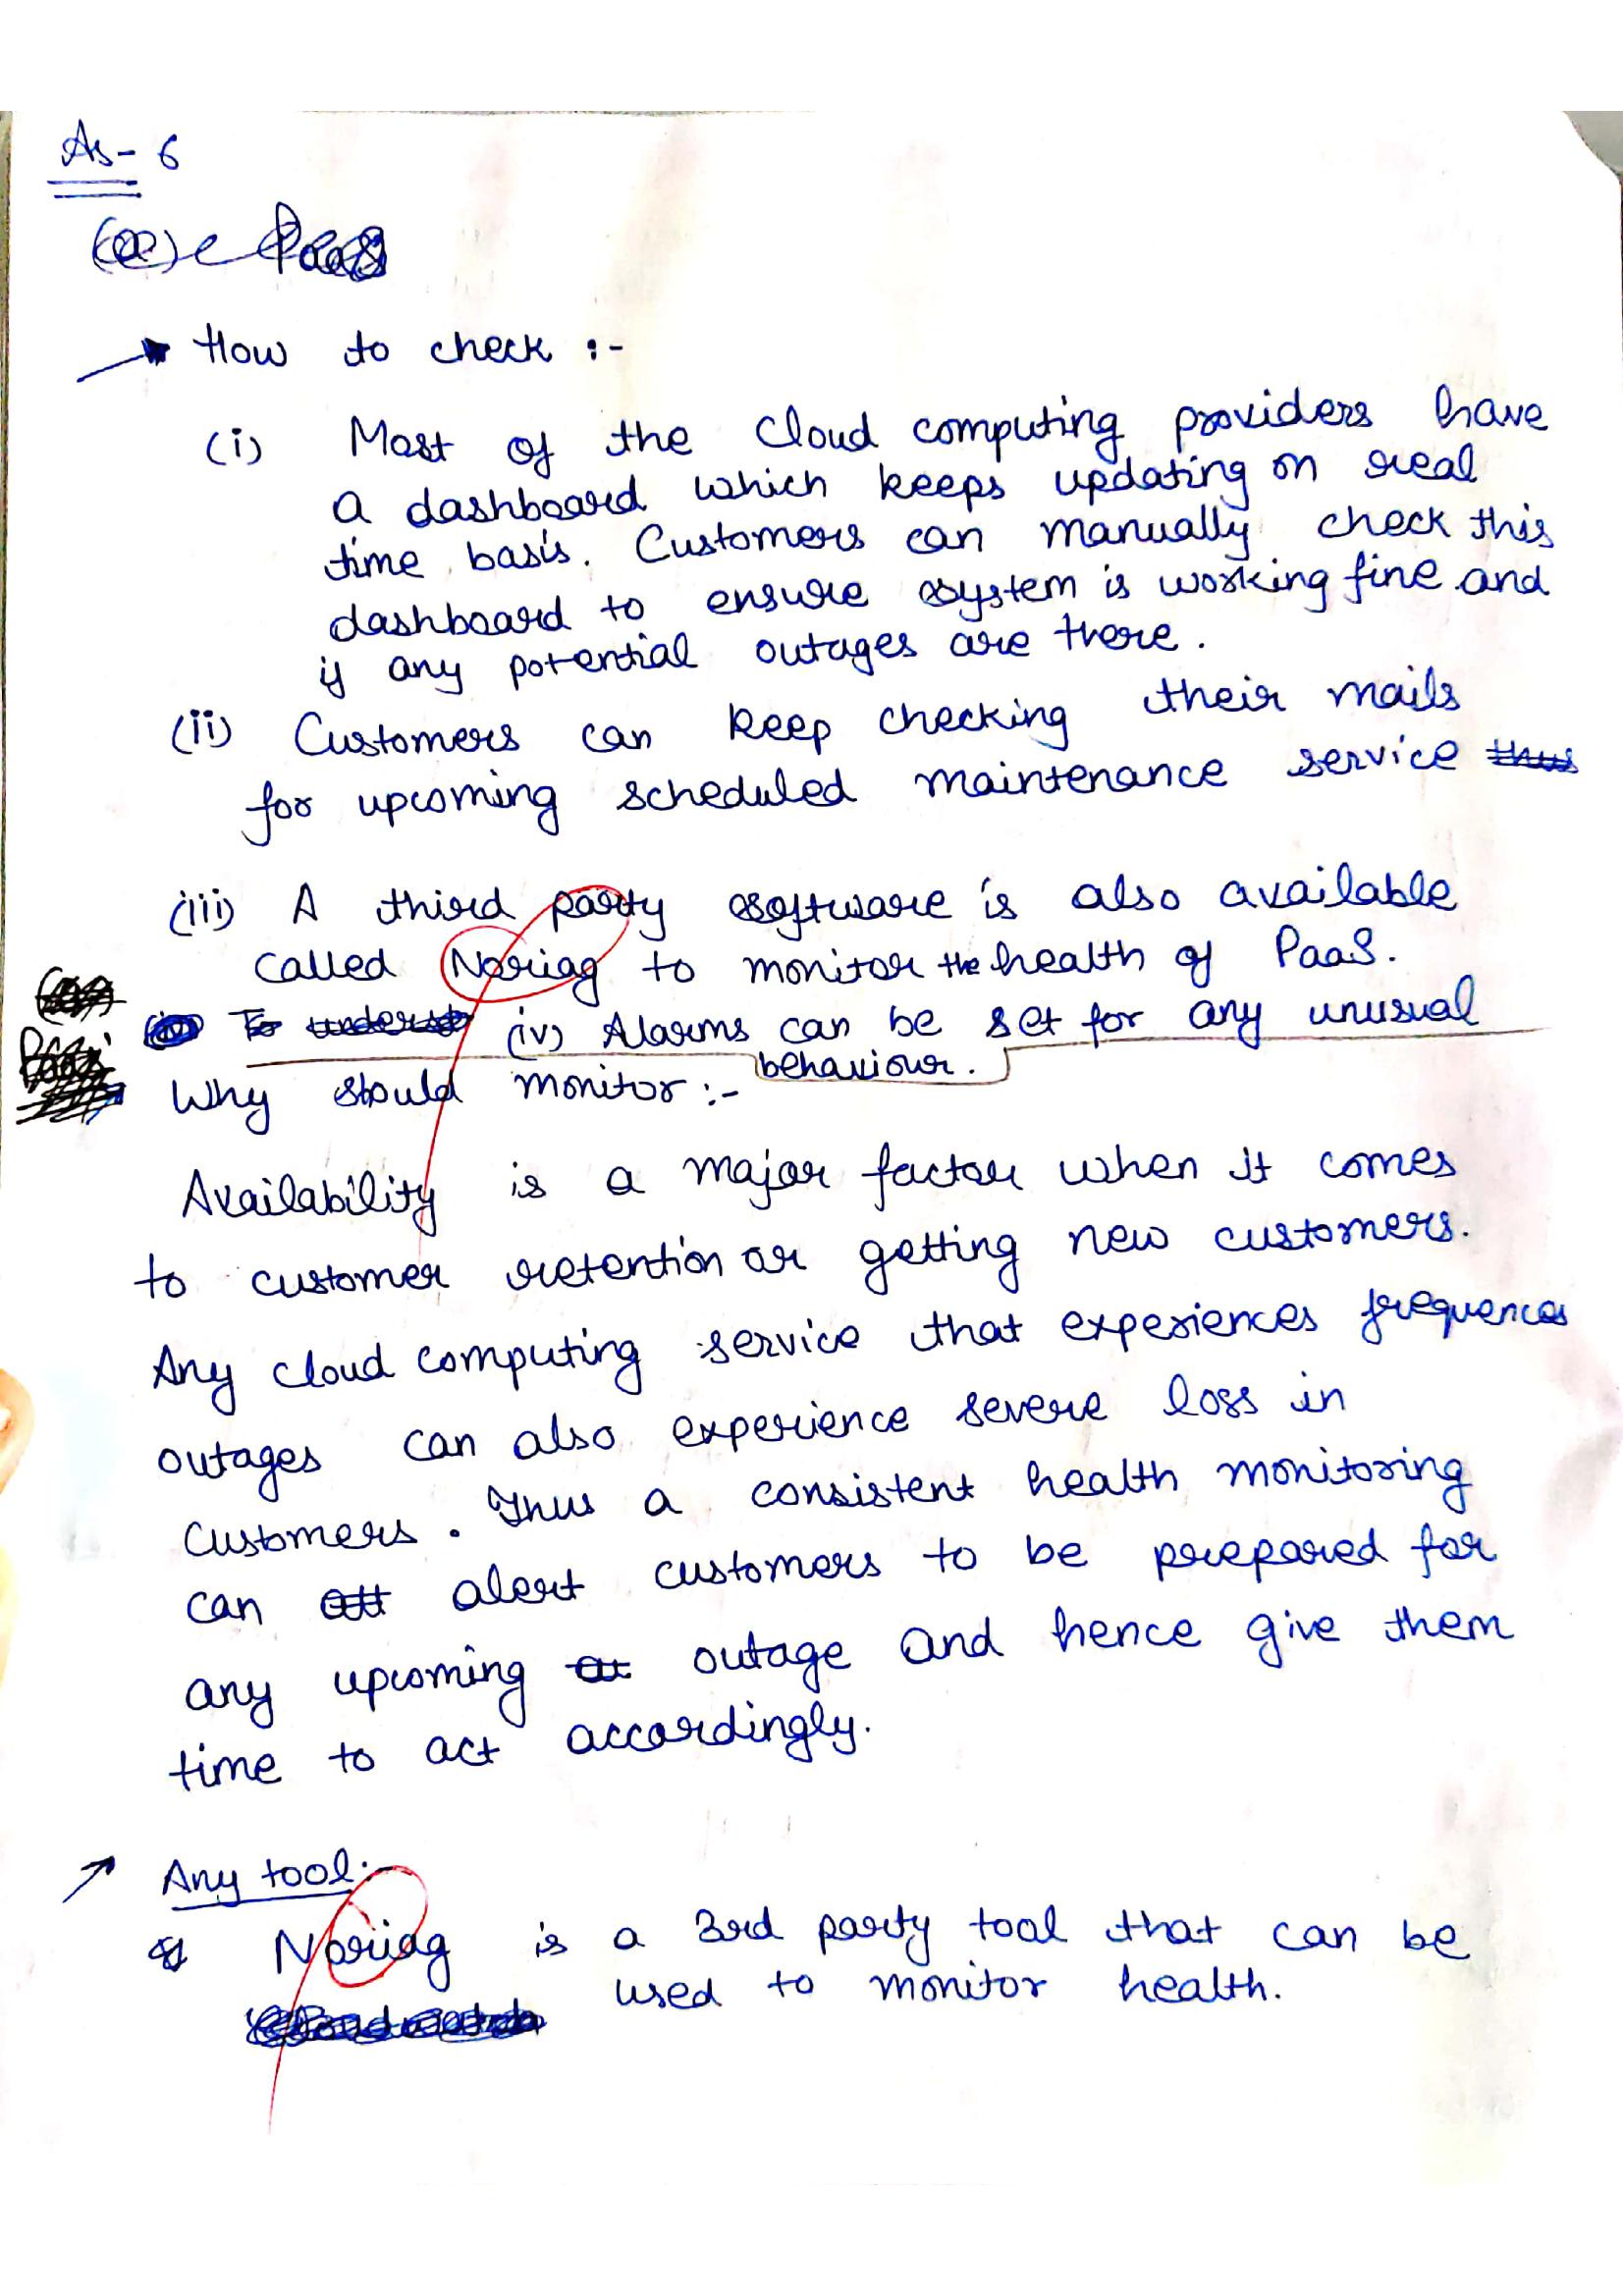 As - 6
How to check :-
(i) Most of the Cloud computing providers have
a dashboard which keeps updating on real
time basis. Customers can manually check this
dashboard to ensure system is working fine and
if any potential outages are there.
(ii) Customers can keep checking their mails
for upcoming scheduled maintenance service thus
(iii) A third party software is also available
called Noriag to monitor the health of PaaS.
To underst (iv) Alarms can be set for any unusual
behaviour.
Why should monitor :-
Availability is a major factor when it comes
to customer retention or getting new customers.
Any cloud computing service that experiences frequences
outages can also experience severe loss in
Customers. Thus a consistent health monitoring
can att alert customers to be prepared for
any upcoming ot outage and hence give them
time to act accordingly.
Any tool :-
Noriag is a 3rd party tool that can be
used to monitor health.